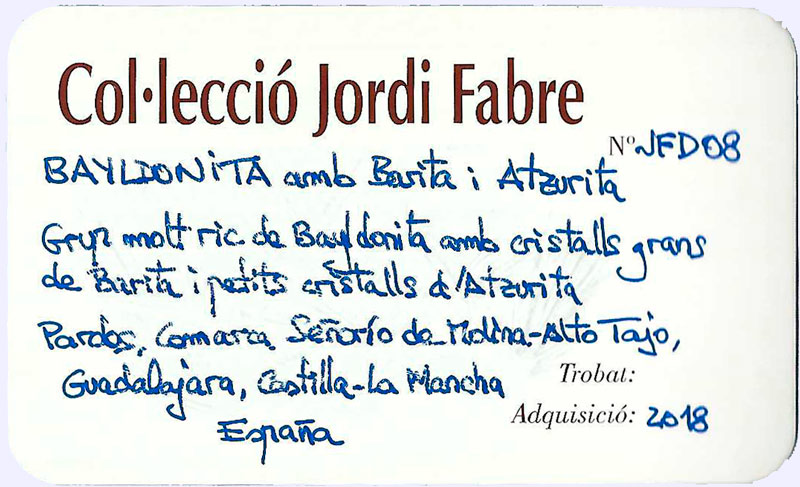 Col·lecció Jordi Fabre
Nº JFD08
BAYLDONITA amb Barita i Atzurita
Grup molt ric de Bayldonita amb cristalls grans
de Barita i petits cristalls d'Atzurita
Pardos, Comarca Señorío de Molina-Alto Tajo,
Guadalajara, Castilla-La Mancha
España
Trobat:
Adquisició: 2018